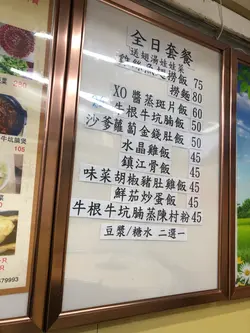 全日套餐
送翅湯娃娃菜
撈飯 75
撈麵 80
XO醬蒸斑片飯 60
牛根牛坑腩飯 50
沙爹蘿蔔金錢肚飯 50
水晶雞飯 45
鎮江骨飯 45
味菜胡椒豬肚雞飯 45
鮮茄炒蛋飯 45
牛根牛坑腩蒸陳村粉 45
豆漿/糖水 二選一